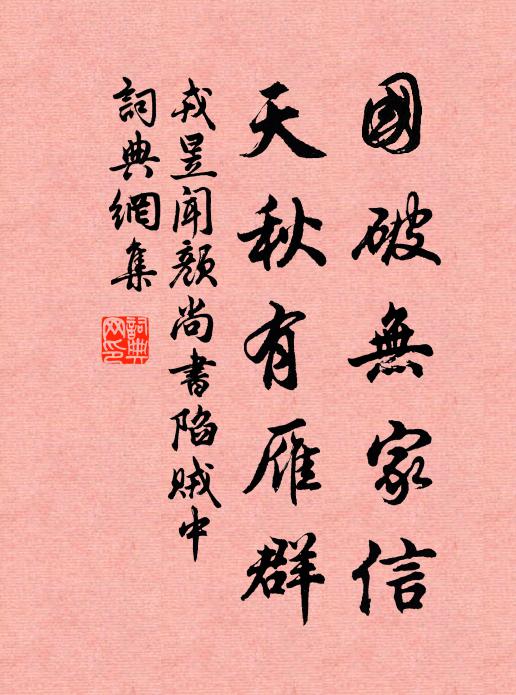 國破無家信
天秋有雁群
戎昱聞顏尚書陷賊中
詞典網集
詞典
网印